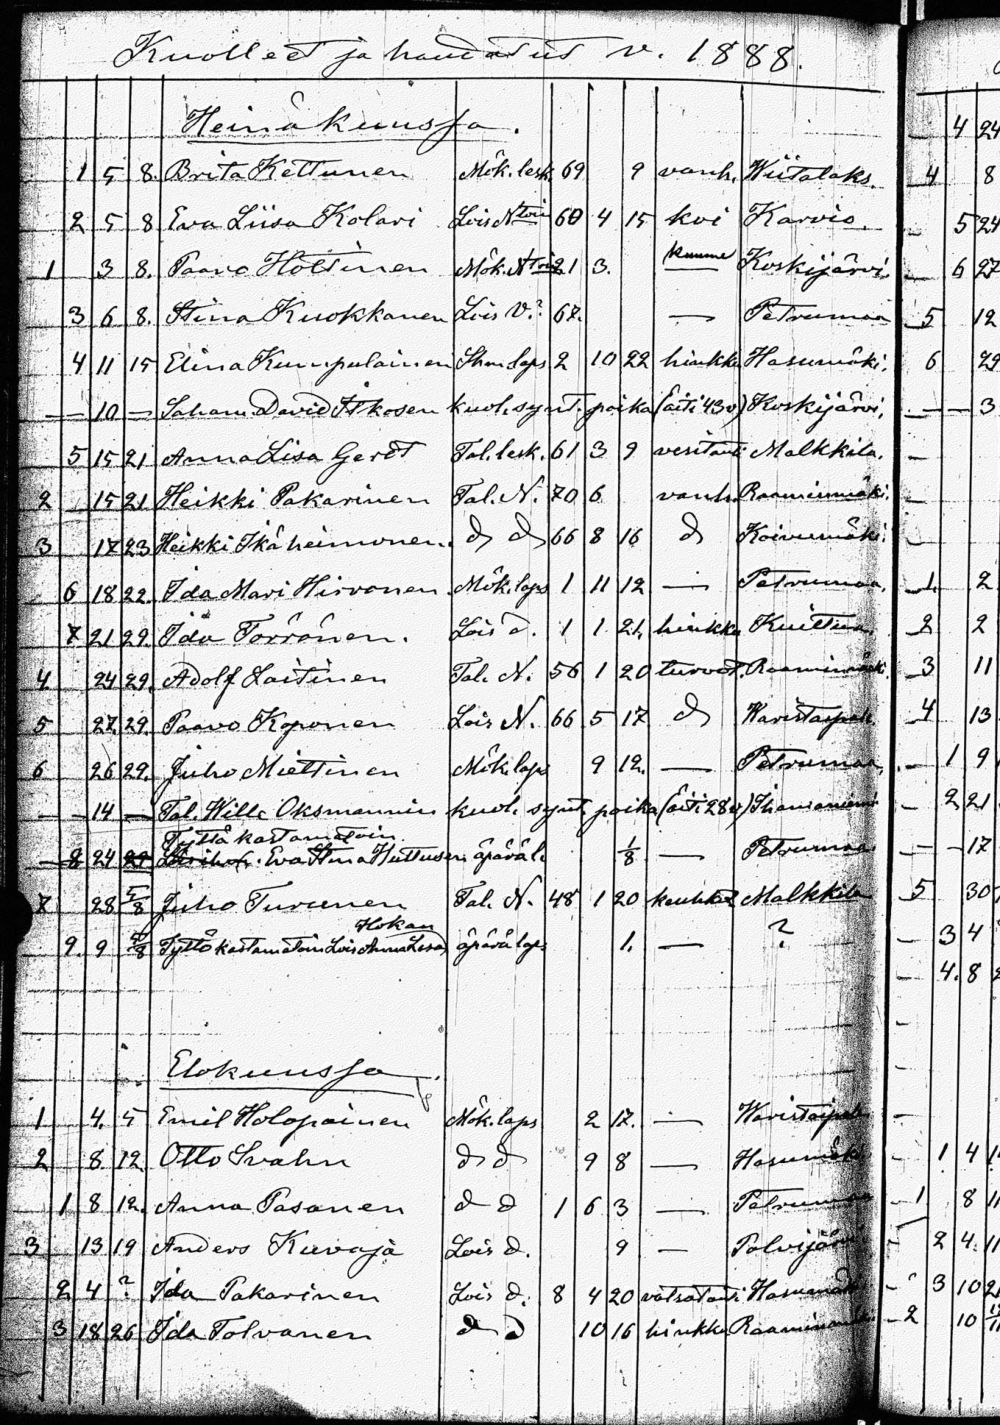 Kuolleet ja haudatut v. 1888.
Heinäkuussa.
1 5 8. Brita Kettunen Mök. lesk. 69 9 vanh. Wiitalaks.
2 5 8 Eva Liisa Kolari Lois N 60 4 15 koi Karvio.
1 3 8. Paavo Hölttinen Mök. N 21 3. kuume Koskijärvi
3 6 8. Stina Kuokkanen Lois V:? 67. — Petrumaa
4 11 15 Elina Kumpulainen laps 2 10 22 hinkk. Hasumäki.
— 10 — David Itkosen kuoll. synt. poika (äiti 43 v) Koskijärvi.
5 15 21 Anna Lisa Gerdt Tal. lesk. 61 3 9 vesitauti Malkkila.
2 15 21 Heikki Pakarinen Tal. N. 70 6 vanh. Raaminmäki.
3 17 23 Heikki Ikäheimonen. d d 66 8 16 d Koivumäki.
6 18 22. Ida Mari Hirvonen Mök. laps 1 11 12 — Petrumaa.
7 21 29. Ida Torrönen. Lois d. 1 1 21. hinkk. Kuittua.
4 24 29. Adolf Laitinen Tal. N. 56 1 20 turvot. Raaminmäki.
5 27. 29. Paavo Koponen Lois N. 66 5 17 d Waristaipal.
6 26 29. Juho Miettinen Mök. laps 9 12. — Petrumaa.
— 14 — Tal. Wille Oksmannin kuol. synt. poika (äiti 28 v)
Tyttö kastamatoin
8 24 29 Eva Stina Huttusen äpäräl. 1/8 — Petrumaa
7 28 5/8 Juho Turunen Tal. N. 48 1 20 keuhkot. Malkkila
Hokan
9. 9 5/8 Tyttö kastamatoin Lois Anna Lisa äpärä laps. 1. — ?
Elokuussa.
1 4. 5 Emil Holopainen Mök. laps 2 17. — Waristaipal.
2 8 12 Otto Svahn d d 9 8 — Hasumäki
1 8 12. Anna Pasanen d d 1 6 3 — Petrumaa
3 13 19 Anders Kuvaja Lois d. 9 — Polvijärvi
2 4 ? Ida Pakarinen Lois d. 8 4 20 vatsatauti Hasumäki
3 18 26 Ida Tolvanen d d 10 16 hinkk. Raaminmäki
4 24
4 8
5 24
6 27
5 12
6 29
— — 3
1 2
2 2
3 11
4 13
1 9
2 21
— — 17
5 30
3 4
4. 8
1 4
1 8
2 4
3 10
2 10